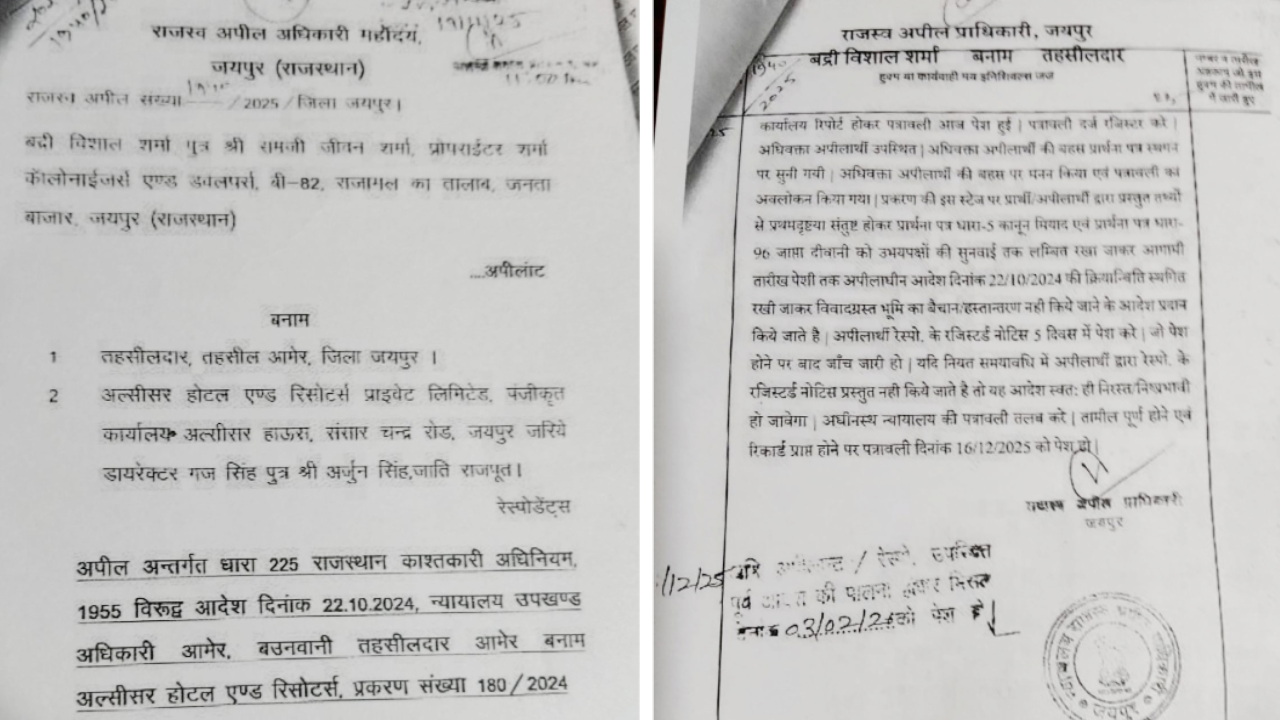 19/11/25
राजस्व अपील अधिकारी महोदय,
जयपुर (राजस्थान)
राजस्व अपील संख्या /2025/जिला जयपुर।
बद्री विशाल शर्मा पुत्र श्री रामजी जीवन शर्मा, प्रोपराईटर शर्मा
कॅालोनाईजर्स एण्ड डवलपर्स, बी-82, राजामल का तालाब, जनता
बाजार, जयपुर (राजस्थान)
....अपीलांट
बनाम
1 तहसीलदार, तहसील आमेर, जिला जयपुर ।
2 अल्सीसर होटल एण्ड रिसोटर्स प्राइवेट लिमिटेड, पंजीकृत
कार्यालय अल्सीसर हाऊस, संसार चन्द्र रोड, जयपुर जरिये
डायरेक्टर गज सिंह पुत्र श्री अर्जुन सिंह,जाति राजपूत।
रेस्पोडेंट्स
अपील अन्तर्गत धारा 225 राजस्थान काश्तकारी अधिनियम,
1955 विरूद्व आदेश दिनांक 22.10.2024, न्यायालय उपखण्ड
अधिकारी आमेर, बउनवानी तहसीलदार आमेर बनाम
अल्सीसर होटल एण्ड रिसोटर्स, प्रकरण संख्या 180/2024
राजस्व अपील प्राधिकारी, जयपुर
बद्री विशाल शर्मा बनाम तहसीलदार
हुक्म या कार्यवाही मय इनिशियल्स जज
1940
2025
कार्यालय रिपोर्ट होकर पत्रावली आज पेश हुई | पत्रावली दर्ज रजिस्टर करे |
अधिवक्ता अपीलार्थी उपस्थित | अधिवक्ता अपीलार्थी की बहस प्रार्थना पत्र स्थगन
पर सुनी गयी | अधिवक्ता अपीलार्थी की बहस पर मनन किया एवं पत्रावली का
अवलोकन किया गया | प्रकरण की इस स्टेज पर प्रार्थी/अपीलार्थी द्वारा प्रस्तुत तथ्यों
से प्रथमदृष्टया संतुष्ट होकर प्रार्थना पत्र धारा-5 कानून मियाद एवं प्रार्थना पत्र धारा-
96 जाप्ता दीवानी को उभयपक्षों की सुनवाई तक लम्बित रखा जाकर आगामी
तारीख पेशी तक अपीलाधीन आदेश दिनांक 22/10/2024 की क्रियान्विति स्थगित
रखी जाकर विवादग्रस्त भूमि का बैचान/हस्तान्तरण नही किये जाने के आदेश प्रदान
किये जाते है | अपीलार्थी रेस्पो. के रजिस्टर्ड नोटिस 5 दिवस में पेश करे | जो पेश
होने पर बाद जाँच जारी हो | यदि नियत समयावधि में अपीलार्थी द्वारा रेस्पो. के
रजिस्टर्ड नोटिस प्रस्तुत नही किये जाते है तो यह आदेश स्वत: ही निरस्त/निष्प्रभावी
हो जावेगा | अधीनस्थ न्यायालय की पत्रावली तलब करे | तामील पूर्ण होने एवं
रिकार्ड प्राप्त होने पर पत्रावली दिनांक 16/12/2025 को पेश हो|
राजस्व अपील प्राधिकारी
जयपुर
/12/25 उपस्थित
पूर्व की पालना
03/02/26 को पेश हो
जयपुर